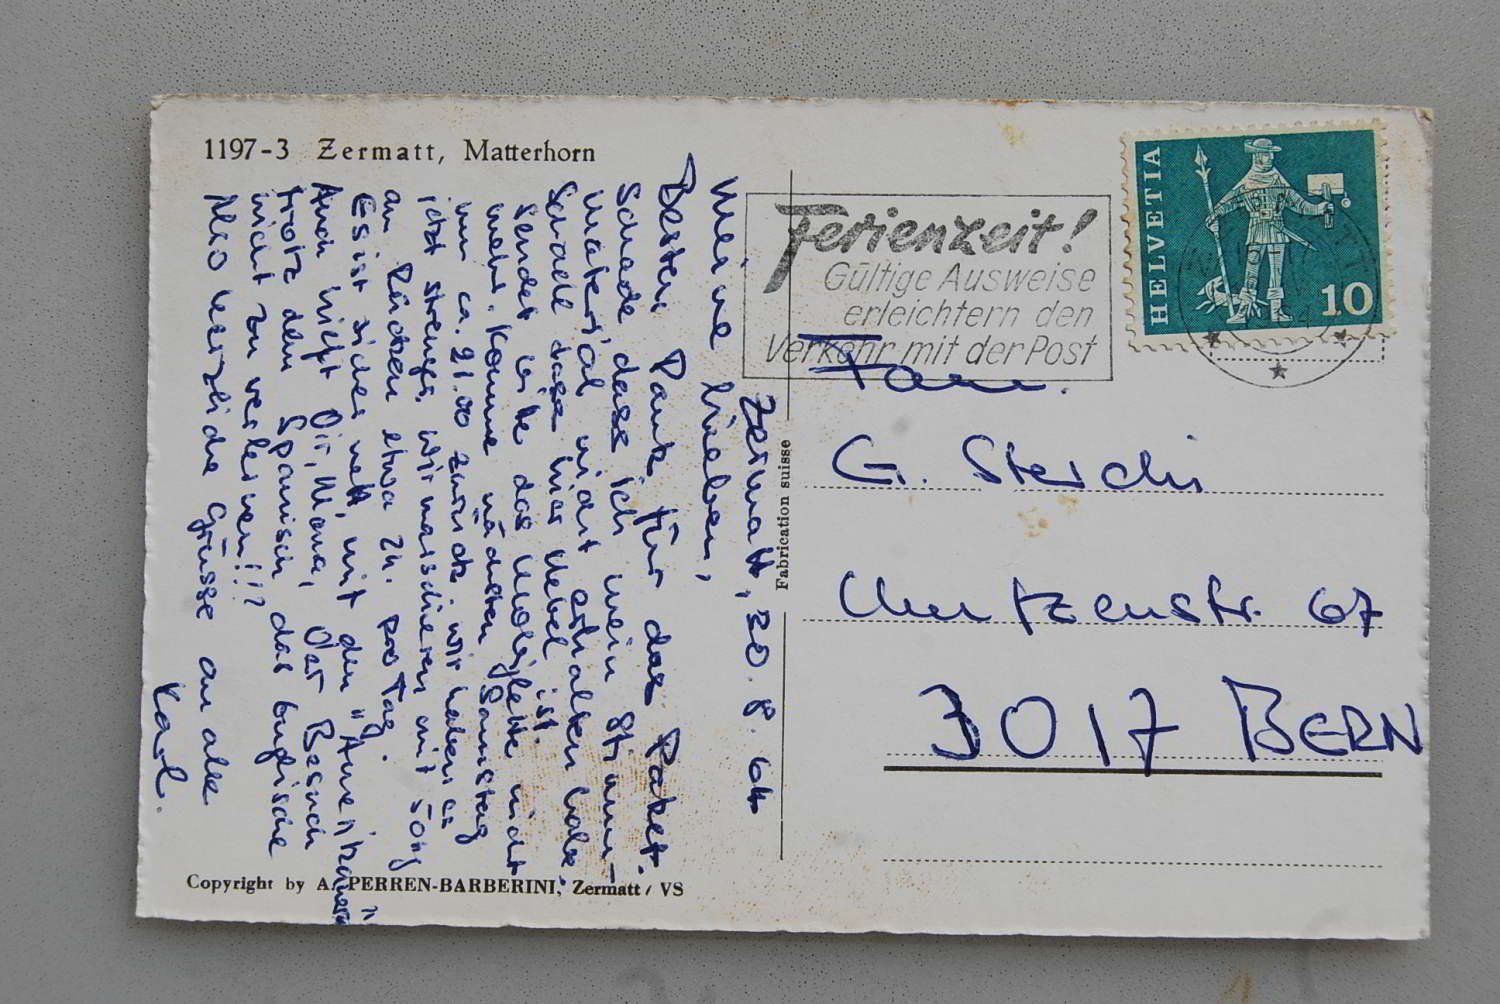 1197-3 Zermatt, Matterhorn
Zermatt, 20. 8. 64
Meine lieben,
Besten Dank für das Paket.
Schade dass ich mein Stimm-
material nicht erhalten habe.
Schade dass hier Nebel ist.
Sendet bitte das nicht
mehr. Komme nächsten Samstag
um ca. 21.00 zurück. Wir haben es
jetzt streng. Wir marschieren mit 50kg
am Rücken etwa 2h. pro Tag.
Es ist sicher nett, mit den "Amerikanern"
Auch hilft Dir, Mama, der Besuch
trotz dem Spanisch das englische
nicht zu verlernen!!!
Also herzliche Grüsse an alle
Karl.
Copyright by A. PERREN-BARBERINI, Zermatt / VS
Fabrication suisse
Ferienzeit!
Gültige Ausweise
erleichtern den
Verkehr mit der Post
HELVETIA
10
Fam.
G. Sterchi
Muntzenstr. 67
3017 BERN